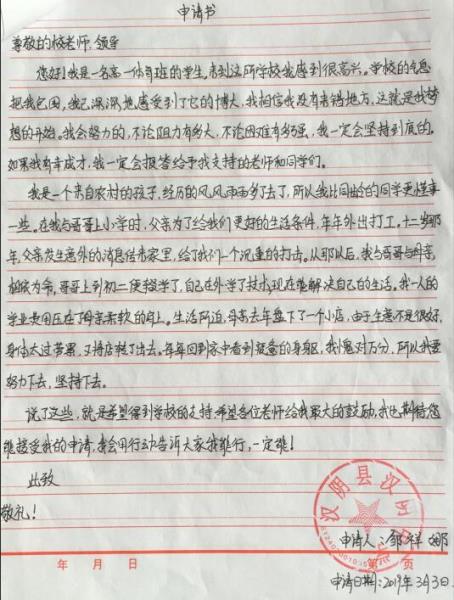 申请书
尊敬的校老师、领导
您好！我是一名高一体育班的学生。来到这所学校我感到很高兴。学校的气息
把我包围，我已深深地感受到了它的博大，我相信我没有来错地方，这就是我梦
想的开始。我会努力的，不论阻力有多大，不论困难有多强，我一定会坚持到底的。
如果我有幸成才，我一定会报答给予我支持的老师和同学们。
我是一个来自农村的孩子，经历的风风雨雨多了去了，所以我比同龄的同学更懂事
一些。在我与哥哥上小学时，父亲为了给我们更好的生活条件，年年外出打工。十二岁那
年，父亲发生意外的消息传来家里，给了我们一个沉重的打击。从那以后，我与哥哥与母亲
相依为命，哥哥上到初二便辍学了，自己在外学了技术，现在能解决自己的生活。我一人的
学业费用压在了母亲柔软的肩上。生活所迫，母亲去年盘下了一个小店，由于生意不是很好，
身体太过劳累，又将店转了出去。每每回到家中看到疲惫的身躯，我愧对万分，所以我要
努力下去，坚持下去。
说了这些，就是希望得到学校的支持希望各位老师给我最大的鼓励，我也期待您
能接受我的申请，我会用行动告诉大家我能行，一定能！
此致
敬礼！
汉阴县汉
申请人：邹祥娜
年 月 日 第 页
申请日期：2019年3月3日